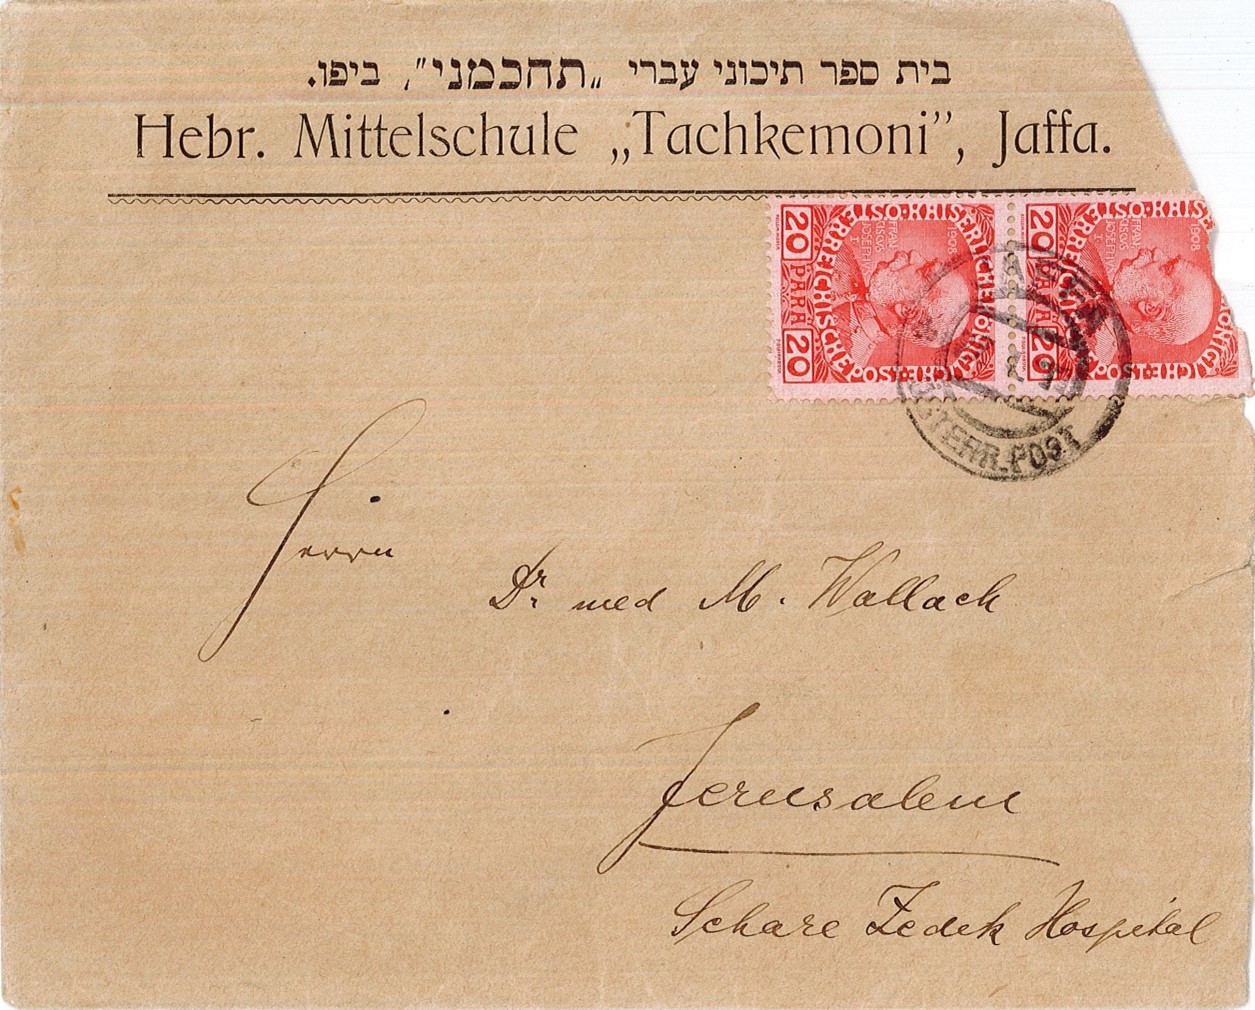 בית ספר תיכוני עברי „תחכמני”, ביפו.
Hebr. Mittelschule „Tachkemoni”, Jaffa.
20 PARA 20
KAISERLICHE KÖNIGLICHE ÖSTERREICHISCHE POST
FRANCISCUS JOSEPH I.
1908
20 PARA 20
1908
JAFFA
ÖSTERR. POST
Herrn
Dr. med M. Wallach
Jerusalem
Schare Zedek Hospital